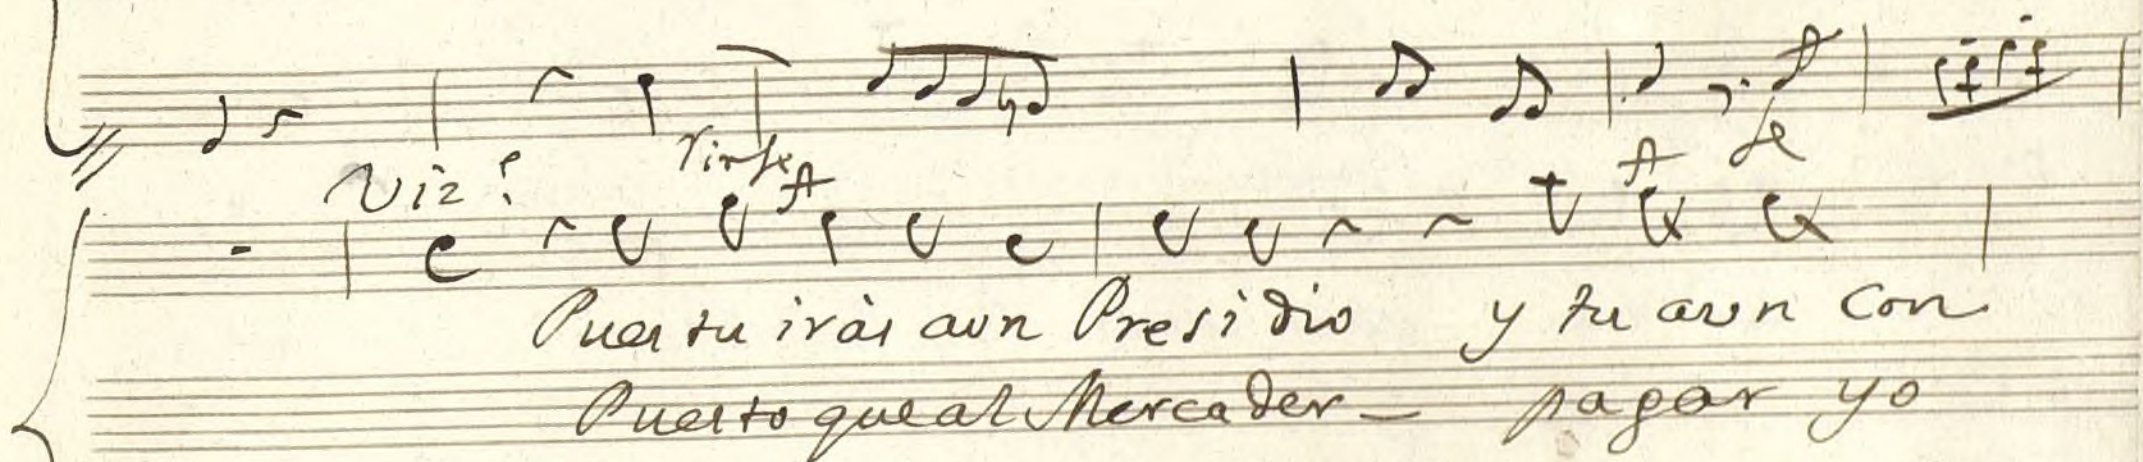 Viz.e
fe
Pues tu iràs aun Presidio y tu aun Con
Puesto que al Mercader pagar yo